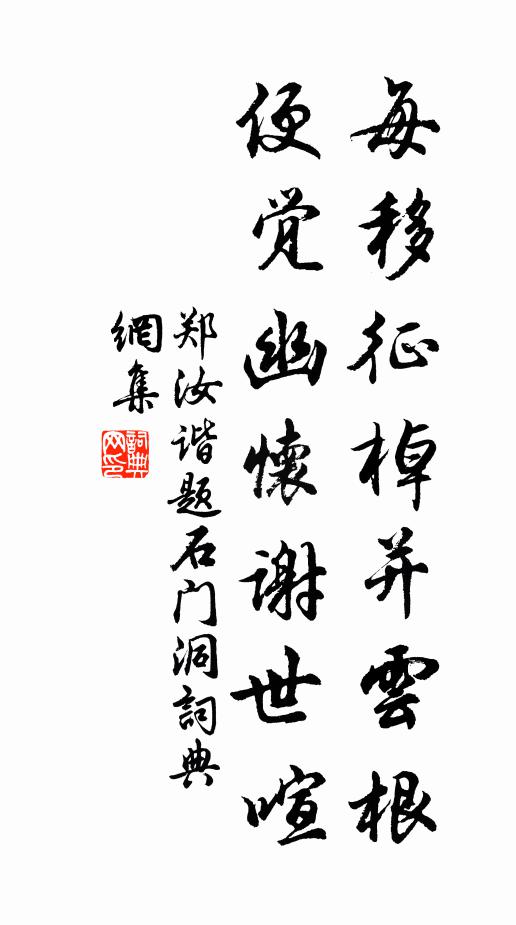 每移征棹并雲根
便觉幽懷谢世喧
郑汝谐题石门洞詞典
網集
詞典网印